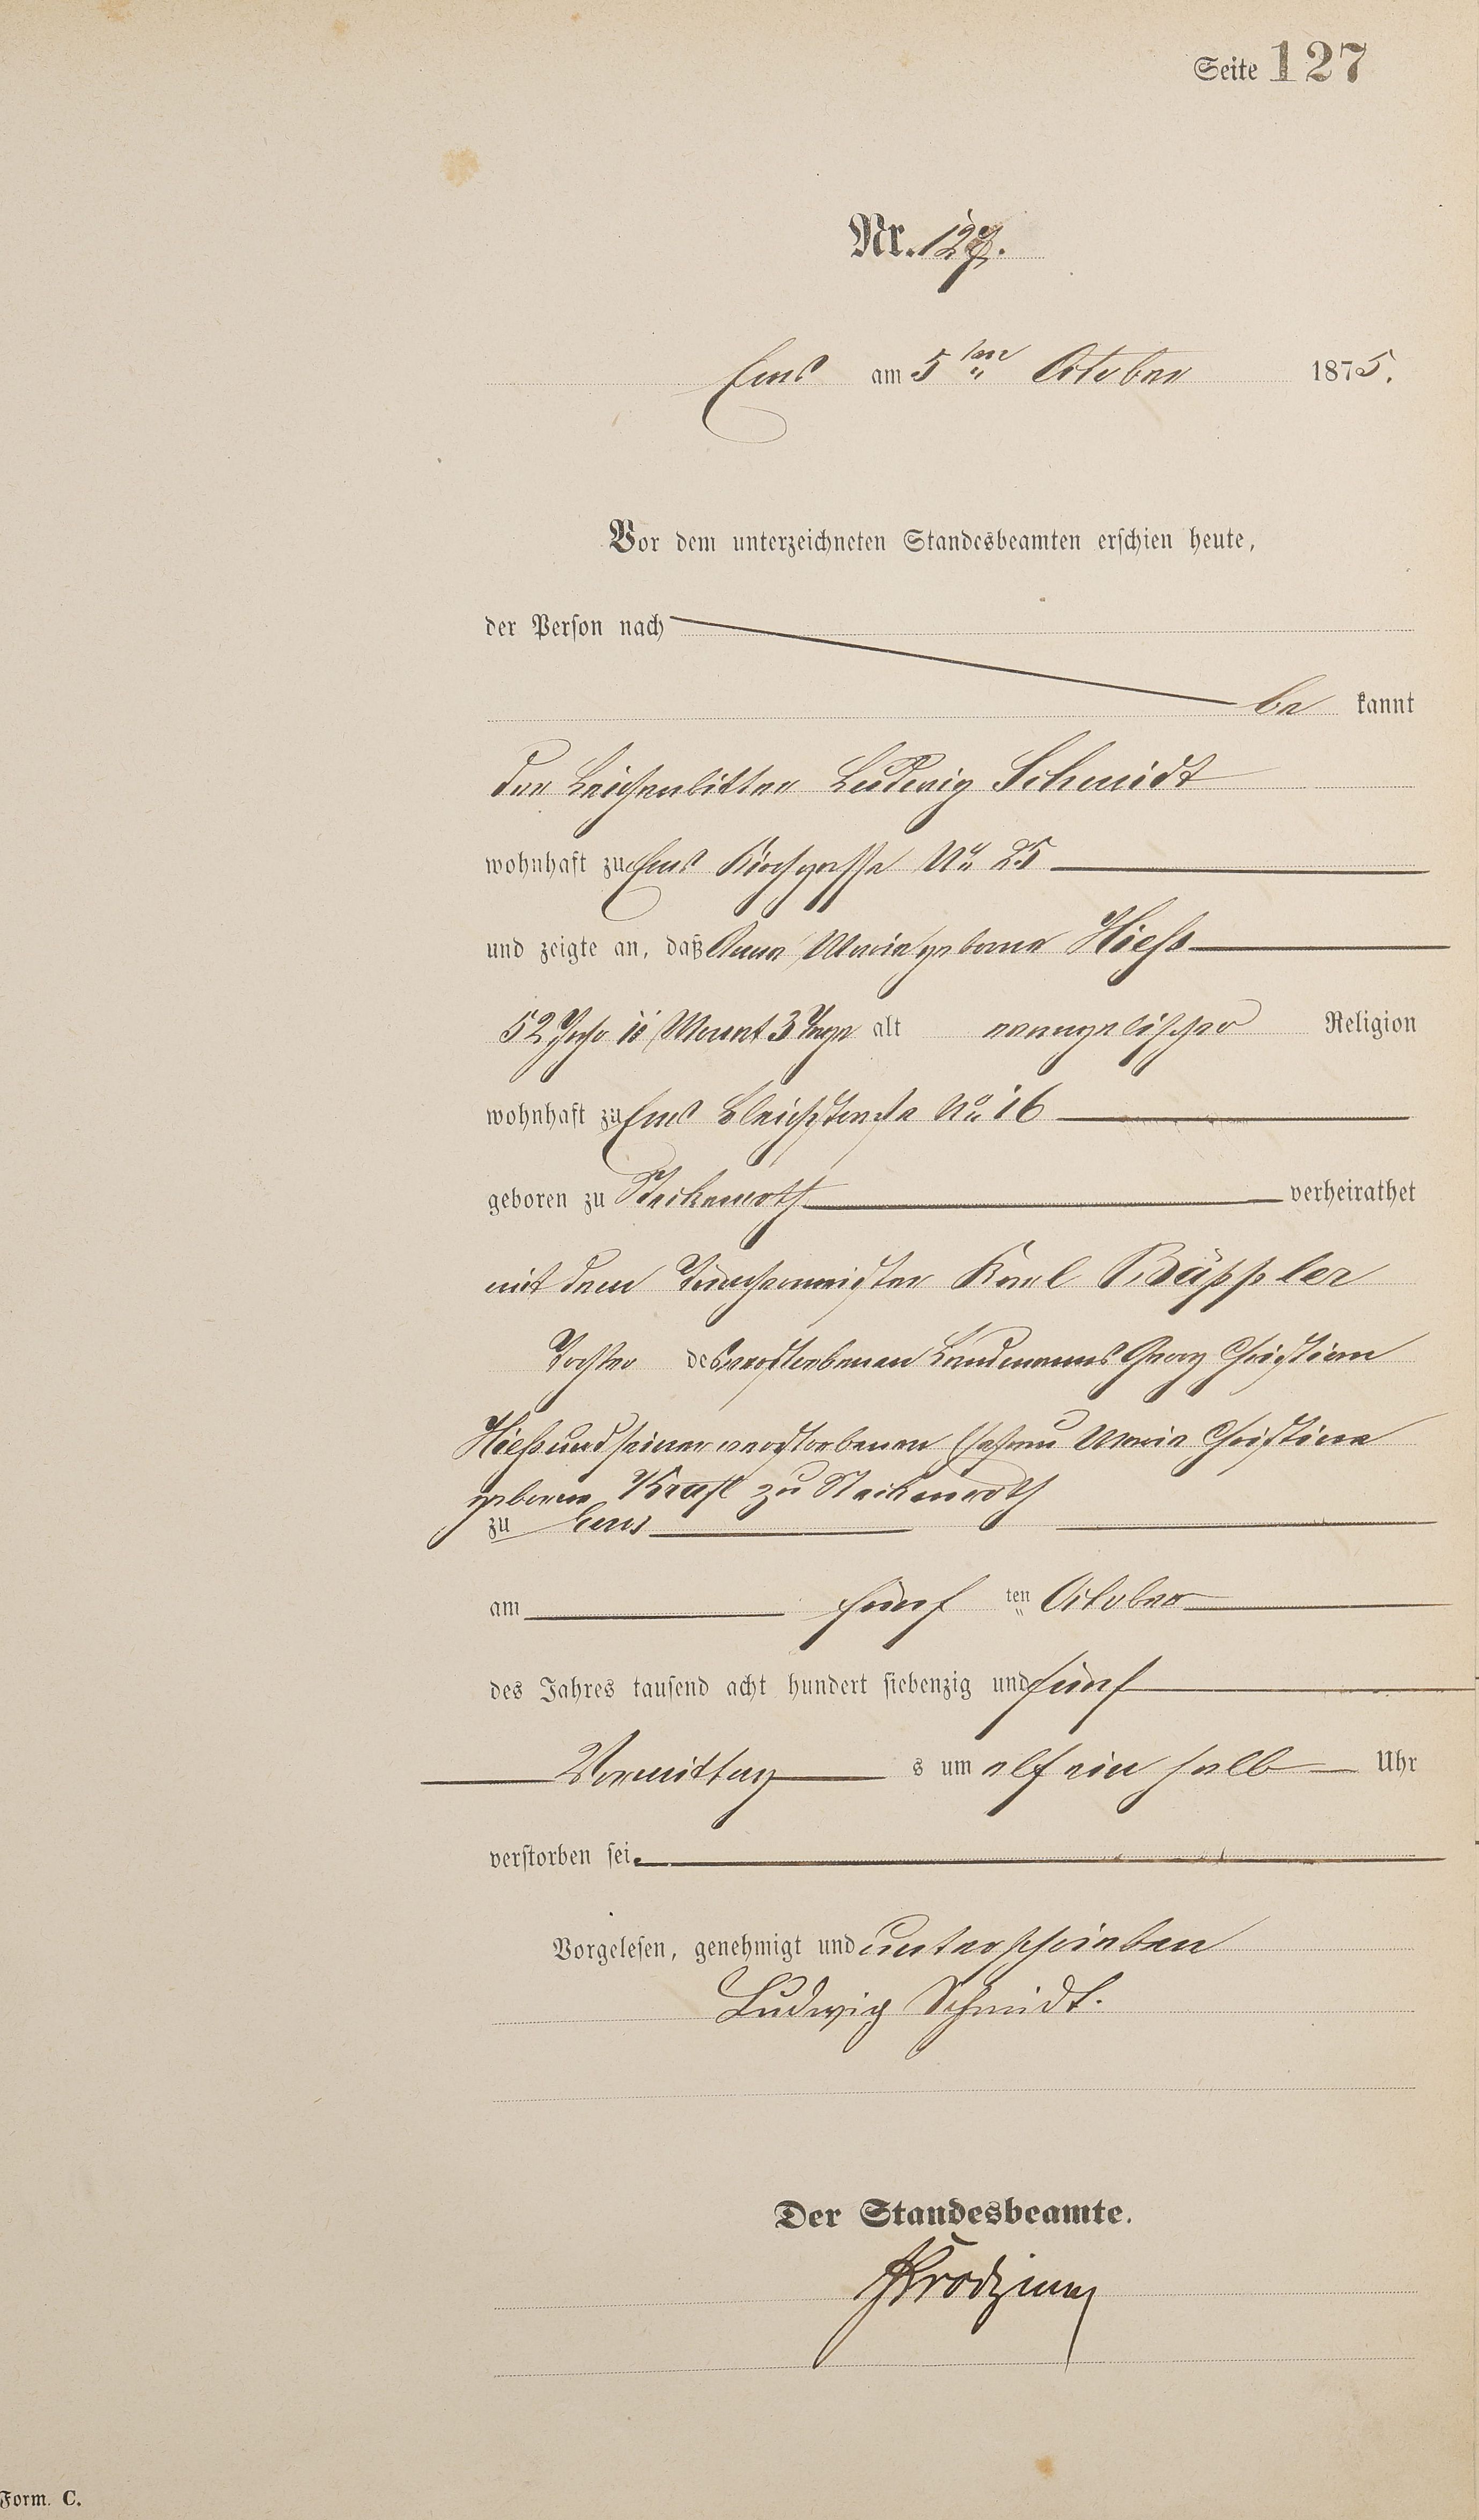 Seite 127
Nr. 127.
Ems am 5ten October 1875.
Vor dem unterzeichneten Standesbeamten erschien heute,
der Person nach
be kannt
der Leichenbitter Ludwig Schmidt
wohnhaft zu Ems Kirchgasse No 25
und zeigte an, daß Anna Maria geborne Hiess
52 Jahr 11 Monat 3 Tage alt evangelischer Religion
wohnhaft zu Ems Bleichstraße No 16
geboren zu Steckenroth verheirathet
mit dem Tünchermeister Karl Bäppler
Tochter des verstorbenen Landmanns Georg Christian
Hiess und seiner verstorbenen Ehefrau Maria Christina
geborne Kraft zu Steckenroth
zu Ems
am fünf ten October
des Jahres tausend acht hundert siebenzig und fünf
Vormittag s um elf ein halb Uhr
verstorben sei.
Vorgelesen, genehmigt und unterschrieben
Ludwig Schmidt.
Der Standesbeamte.
Form. C.